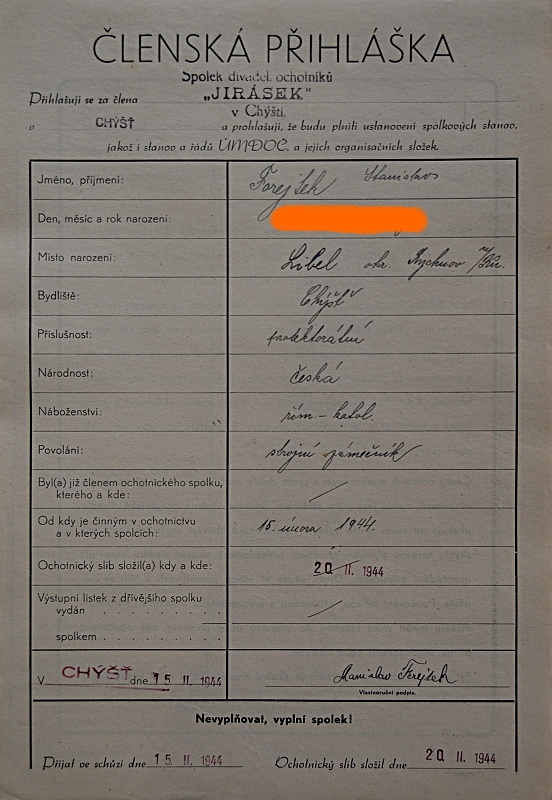 ČLENSKÁ PŘIHLÁŠKA
Spolek divadel. ochotníků
Přihlašuji se za člena „JIRÁSEK"
v Chýšti.
o CHÝŠŤ a prohlašuji, že budu plniti ustanovení spolkových stanov,
jakož i stanov a řádů ÚMDOČ. a jejich organisačních složek.
Jméno, příjmení: Forejtek Stanislav
Den, měsíc a rok narození:
Místo narození: Libel okr. Rychnov n/Kn.
Bydliště: Chýšť
Příslušnost: protektorátní
Národnost: česká
Náboženství: řím. – katol.
Povolání: strojní zámečník
Byl(a) již členem ochotnického spolku,
kterého a kde: /
Od kdy je činným v ochotnictvu
a v kterých spolcích: 15. února 1944.
Ochotnický slib složil(a) kdy a kde: 20 II. 1944
Výstupní lístek z dřívějšího spolku
vydán . . . . . . . . . . . /
spolkem . . . . . . . . . .
V CHÝŠŤ dne 15 II. 1944 Stanislav Forejtek
Vlastnoruční podpis.
Nevyplňovat, vyplní spolek!
Přijat ve schůzi dne 15 II. 1944 Ochotnický slib složil dne 20 II. 1944